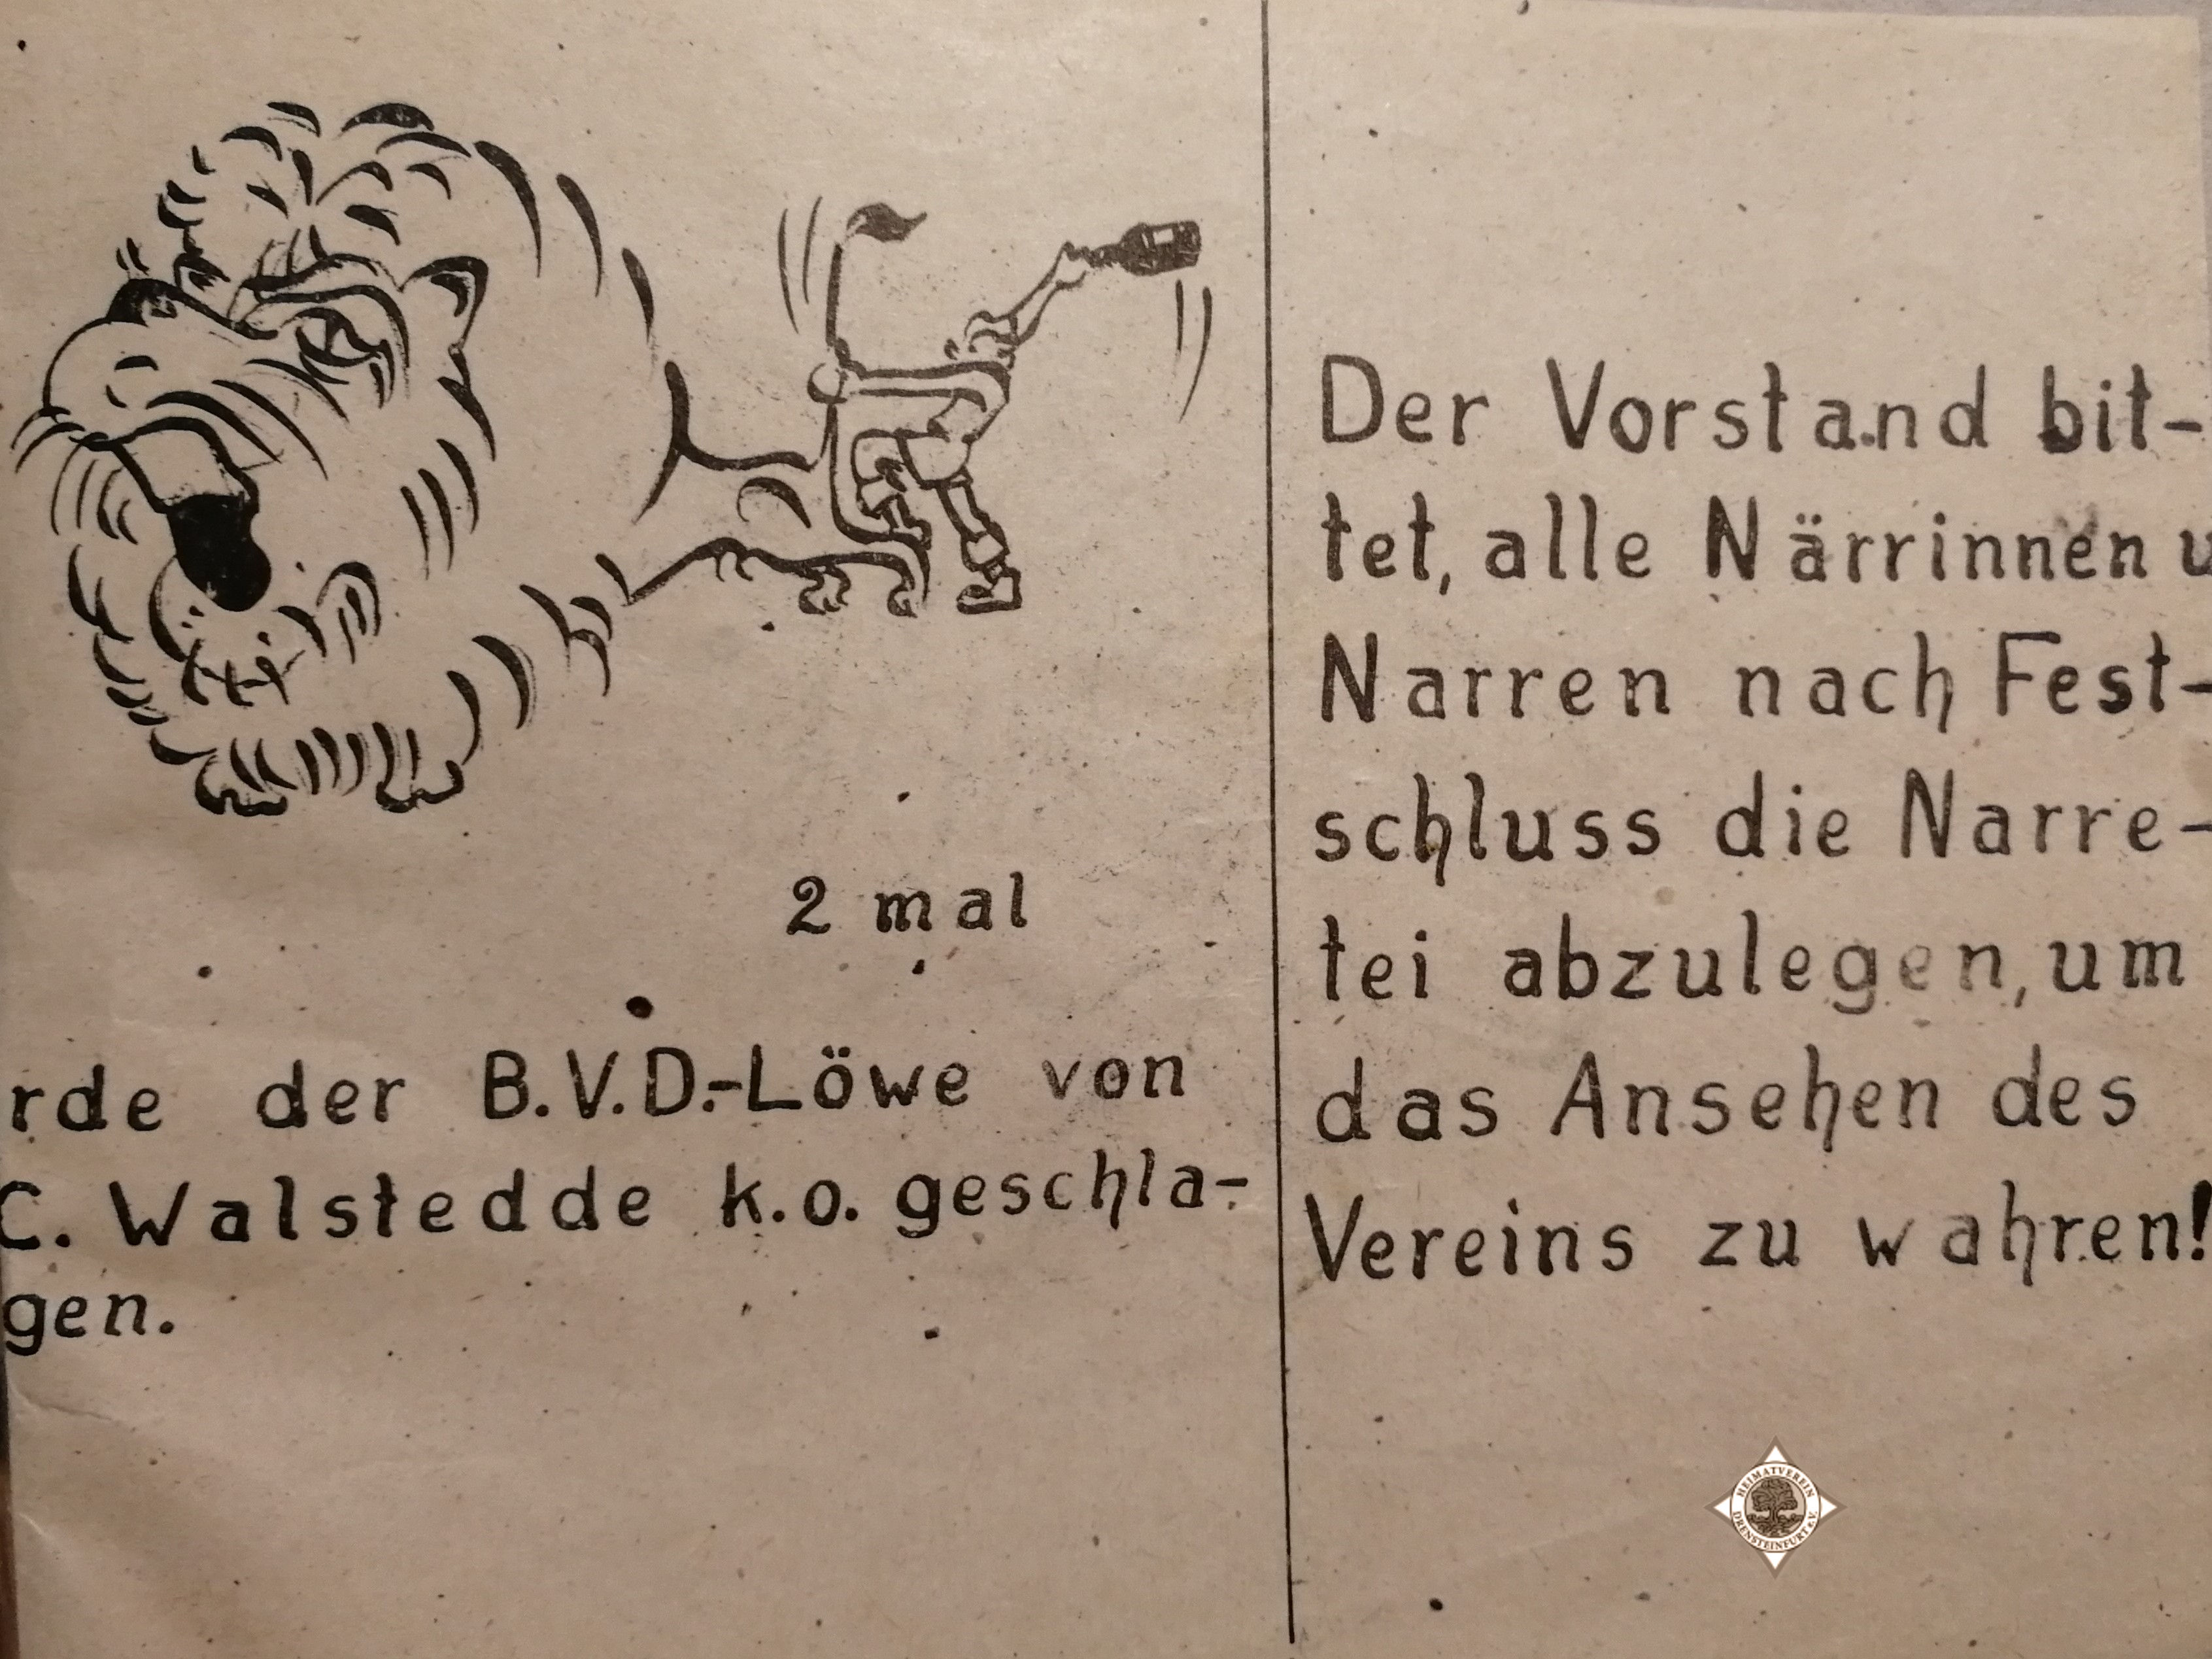 2 mal
rde der B.V.D.-Löwe von
C. Walstedde k.o. geschla-
gen.
Der Vorstand bit-
tet, alle Närrinnen u
Narren nach Fest-
schluss die Narre-
tei abzulegen, um
das Ansehen des
Vereins zu wahren!
HEIMATVEREIN
DRENSTEINFURT e.V.